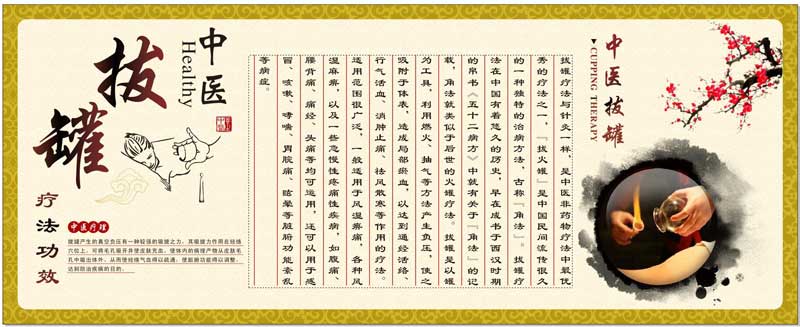 中医拔罐
CUPPING THERAPY
拔罐疗法与针灸一样，是中医非药物疗法中最优
秀的疗法之一，『拔火罐』是中国民间流传很久
的一种独特的治病方法，古称『角法』。拔罐疗
法在中国有着悠久的历史，早在成书于西汉时期
的帛书《五十二病方》中就有关于『角法』的记
载，角法就类似于后世的火罐疗法。拔罐是以罐
为工具，利用燃火、抽气等方法产生负压，使之
吸附于体表，造成局部瘀血，以达到通经活络、
行气活血、消肿止痛、祛风散寒等作用的疗法。
适用范围很广泛，一般适用于风湿痹痛，各种风
湿麻痹，以及一些急慢性疼痛性疾病，如腹痛、
腰背痛、痛经、头痛等均可运用，还可以用于感
冒、咳嗽、哮喘、胃脘痛、眩晕等脏腑功能紊乱
等病症。
中医
Healthy
拔罐
疗法功效
中医疗理
拔罐产生的真空负压有一种较强的吸拔之力，其吸拔力作用在经络
穴位上，可将毛孔吸开并使皮肤充血，使体内的病理产物从皮肤毛
孔中吸出体外，从而使经络气血得以疏通，使脏腑功能得以调整，
达到防治疾病的目的。